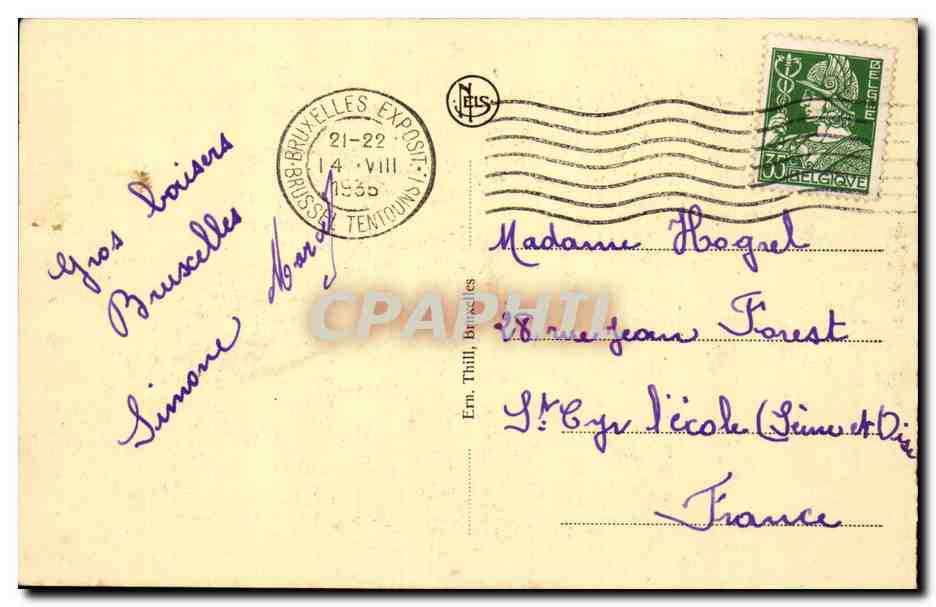 Gros baisers
Bruxelles
Simone
BRUXELLES EXPOSIT.
21-22
14 VIII
1935
BRUSSEL TENTOONS.
NELS
35
BELGIE
BELGIQUE
Ern. Thill, Bruxelles
CPAPHIL
Madame Hogrel
28 rue Jean Forest
St. Cyr l'école (Seine et Oise
France